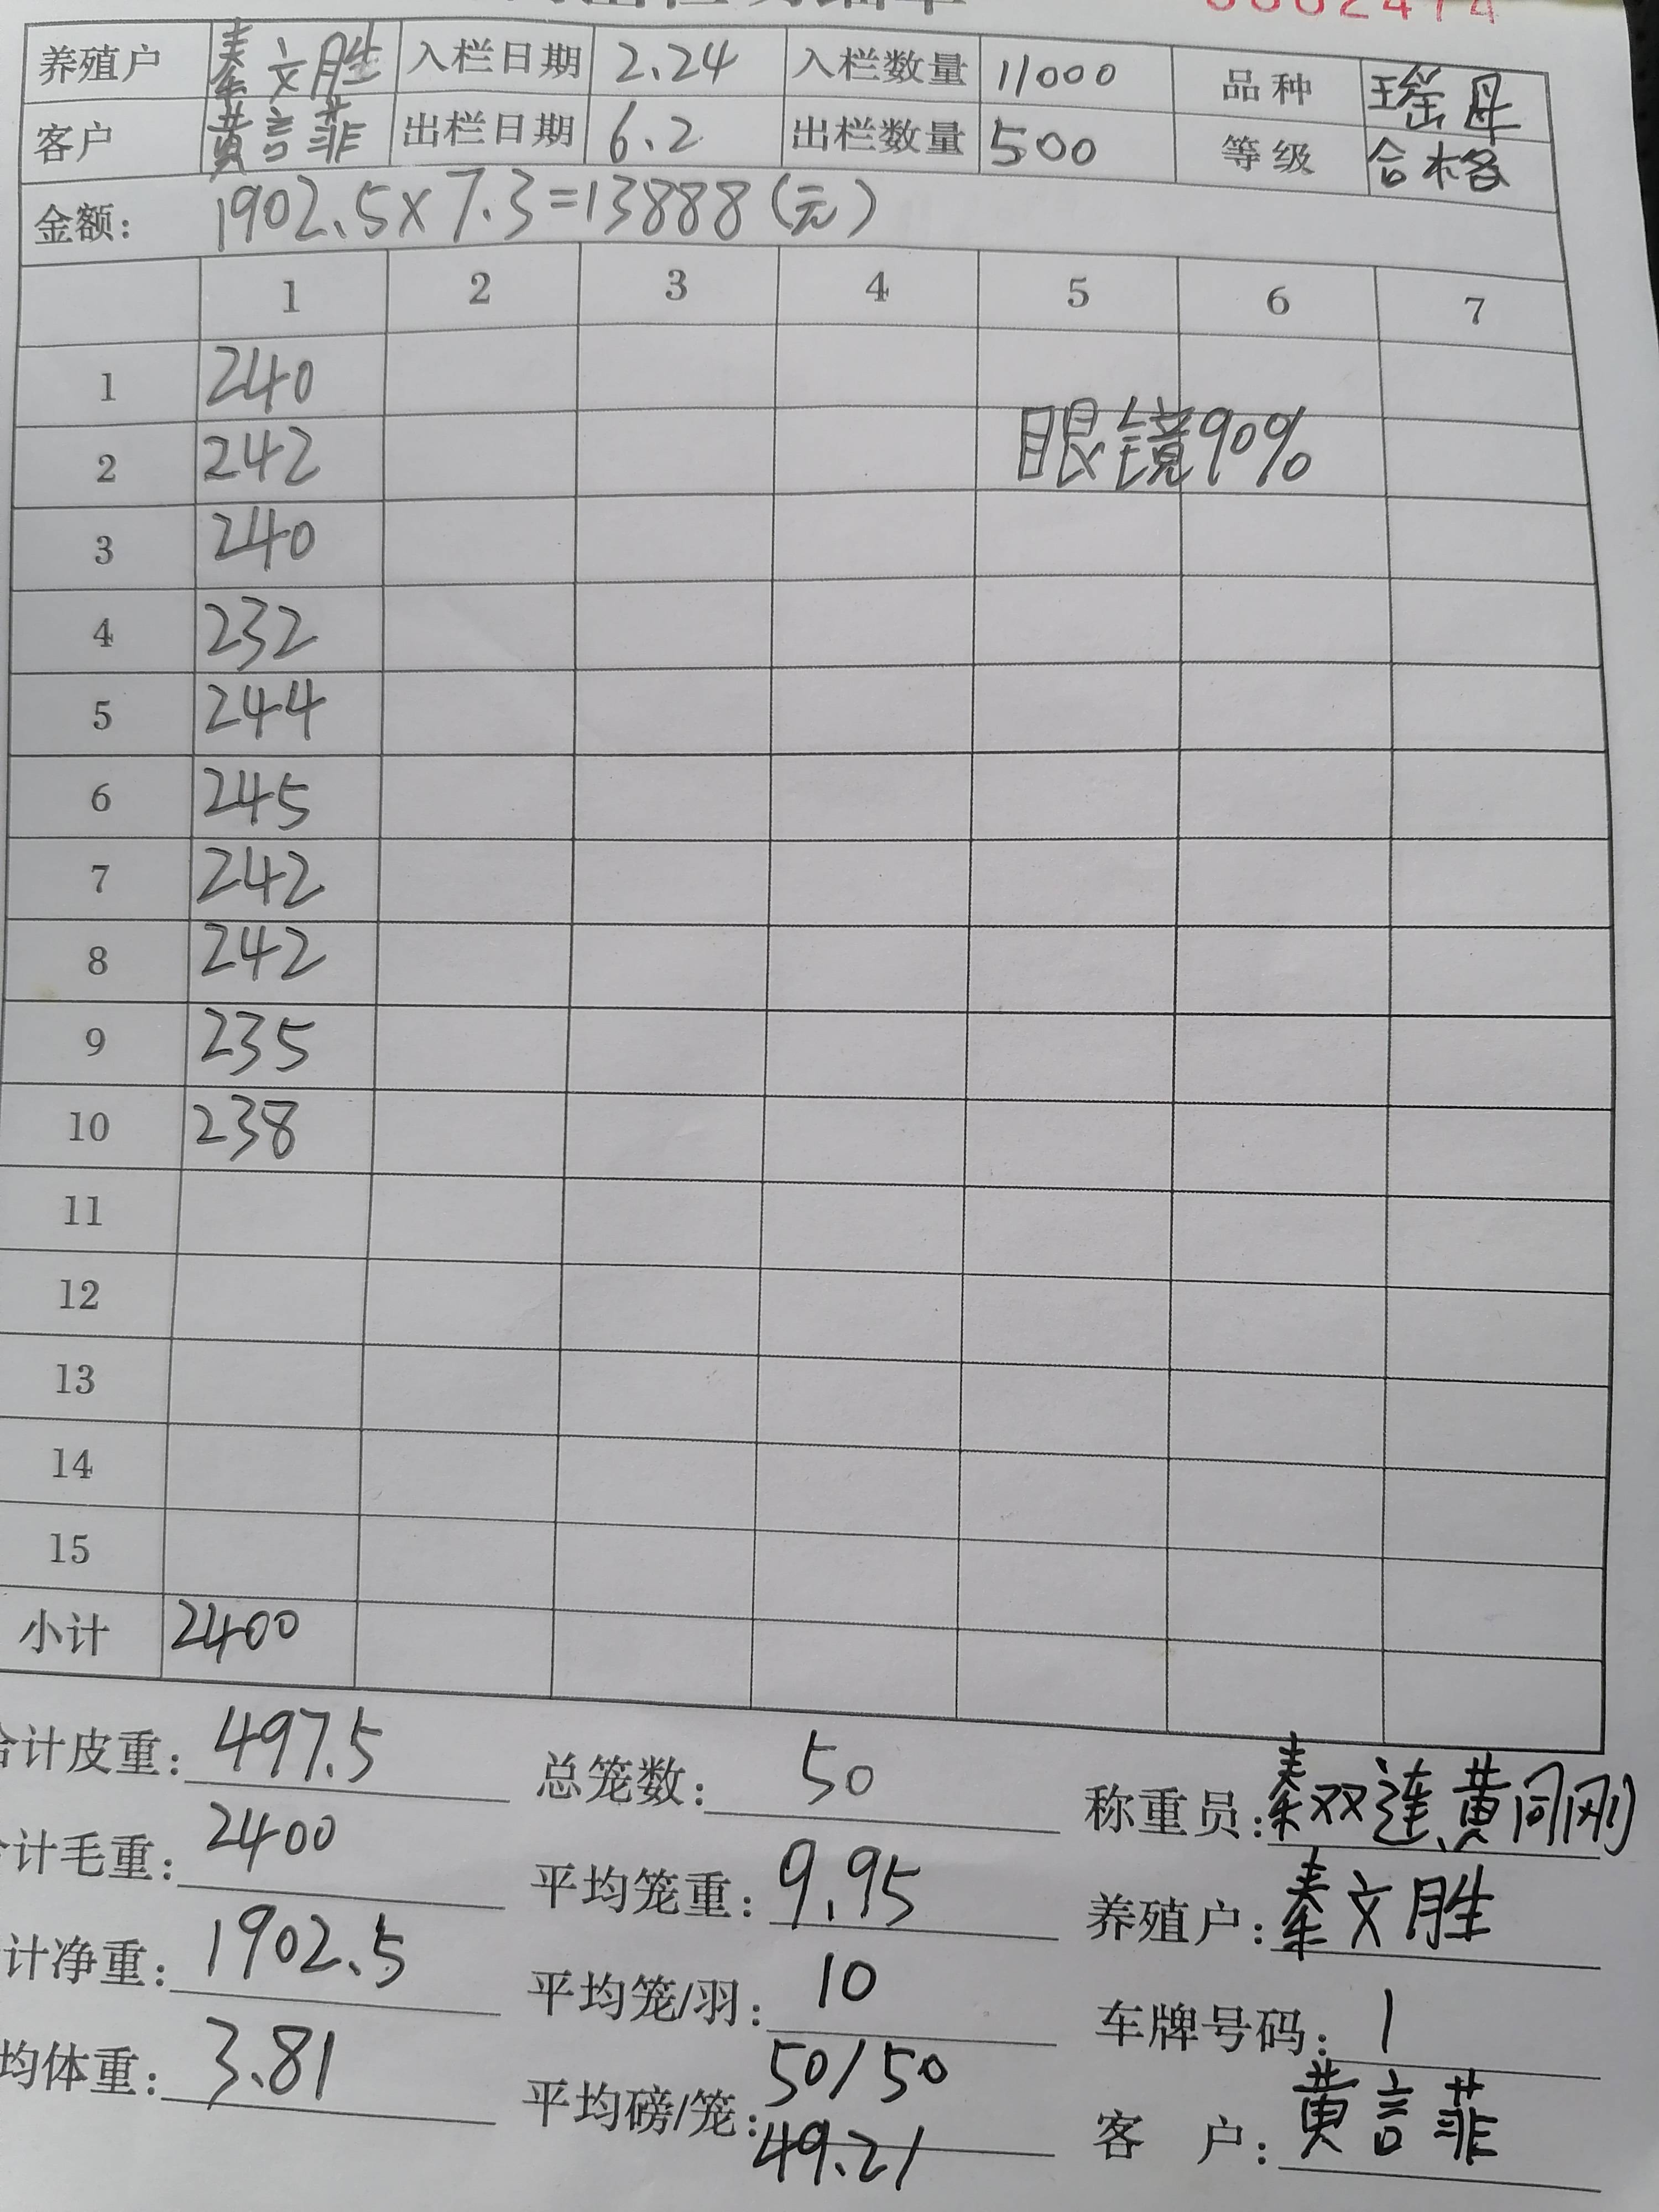 养殖户 秦文胜 入栏日期 2.24 入栏数量 11000 品种 瑶母
客户 黄言菲 出栏日期 6.2 出栏数量 500 等级 合格
金额： 1902.5×7.3=13888(元)
1 2 3 4 5 6 7
1 240
眼镜90%
2 242
3 240
4 232
5 244
6 245
7 242
8 242
9 235
10 238
11
12
13
14
15
小计 2400
合计皮重：497.5 总笼数：50 称重员：秦双连、黄同刚
计毛重：2400 平均笼重：9.95 养殖户：秦文胜
计净重：1902.5 平均笼/羽：10 车牌号码：1
均体重：3.81 平均磅/笼：50/50 客户：黄言菲
49.21